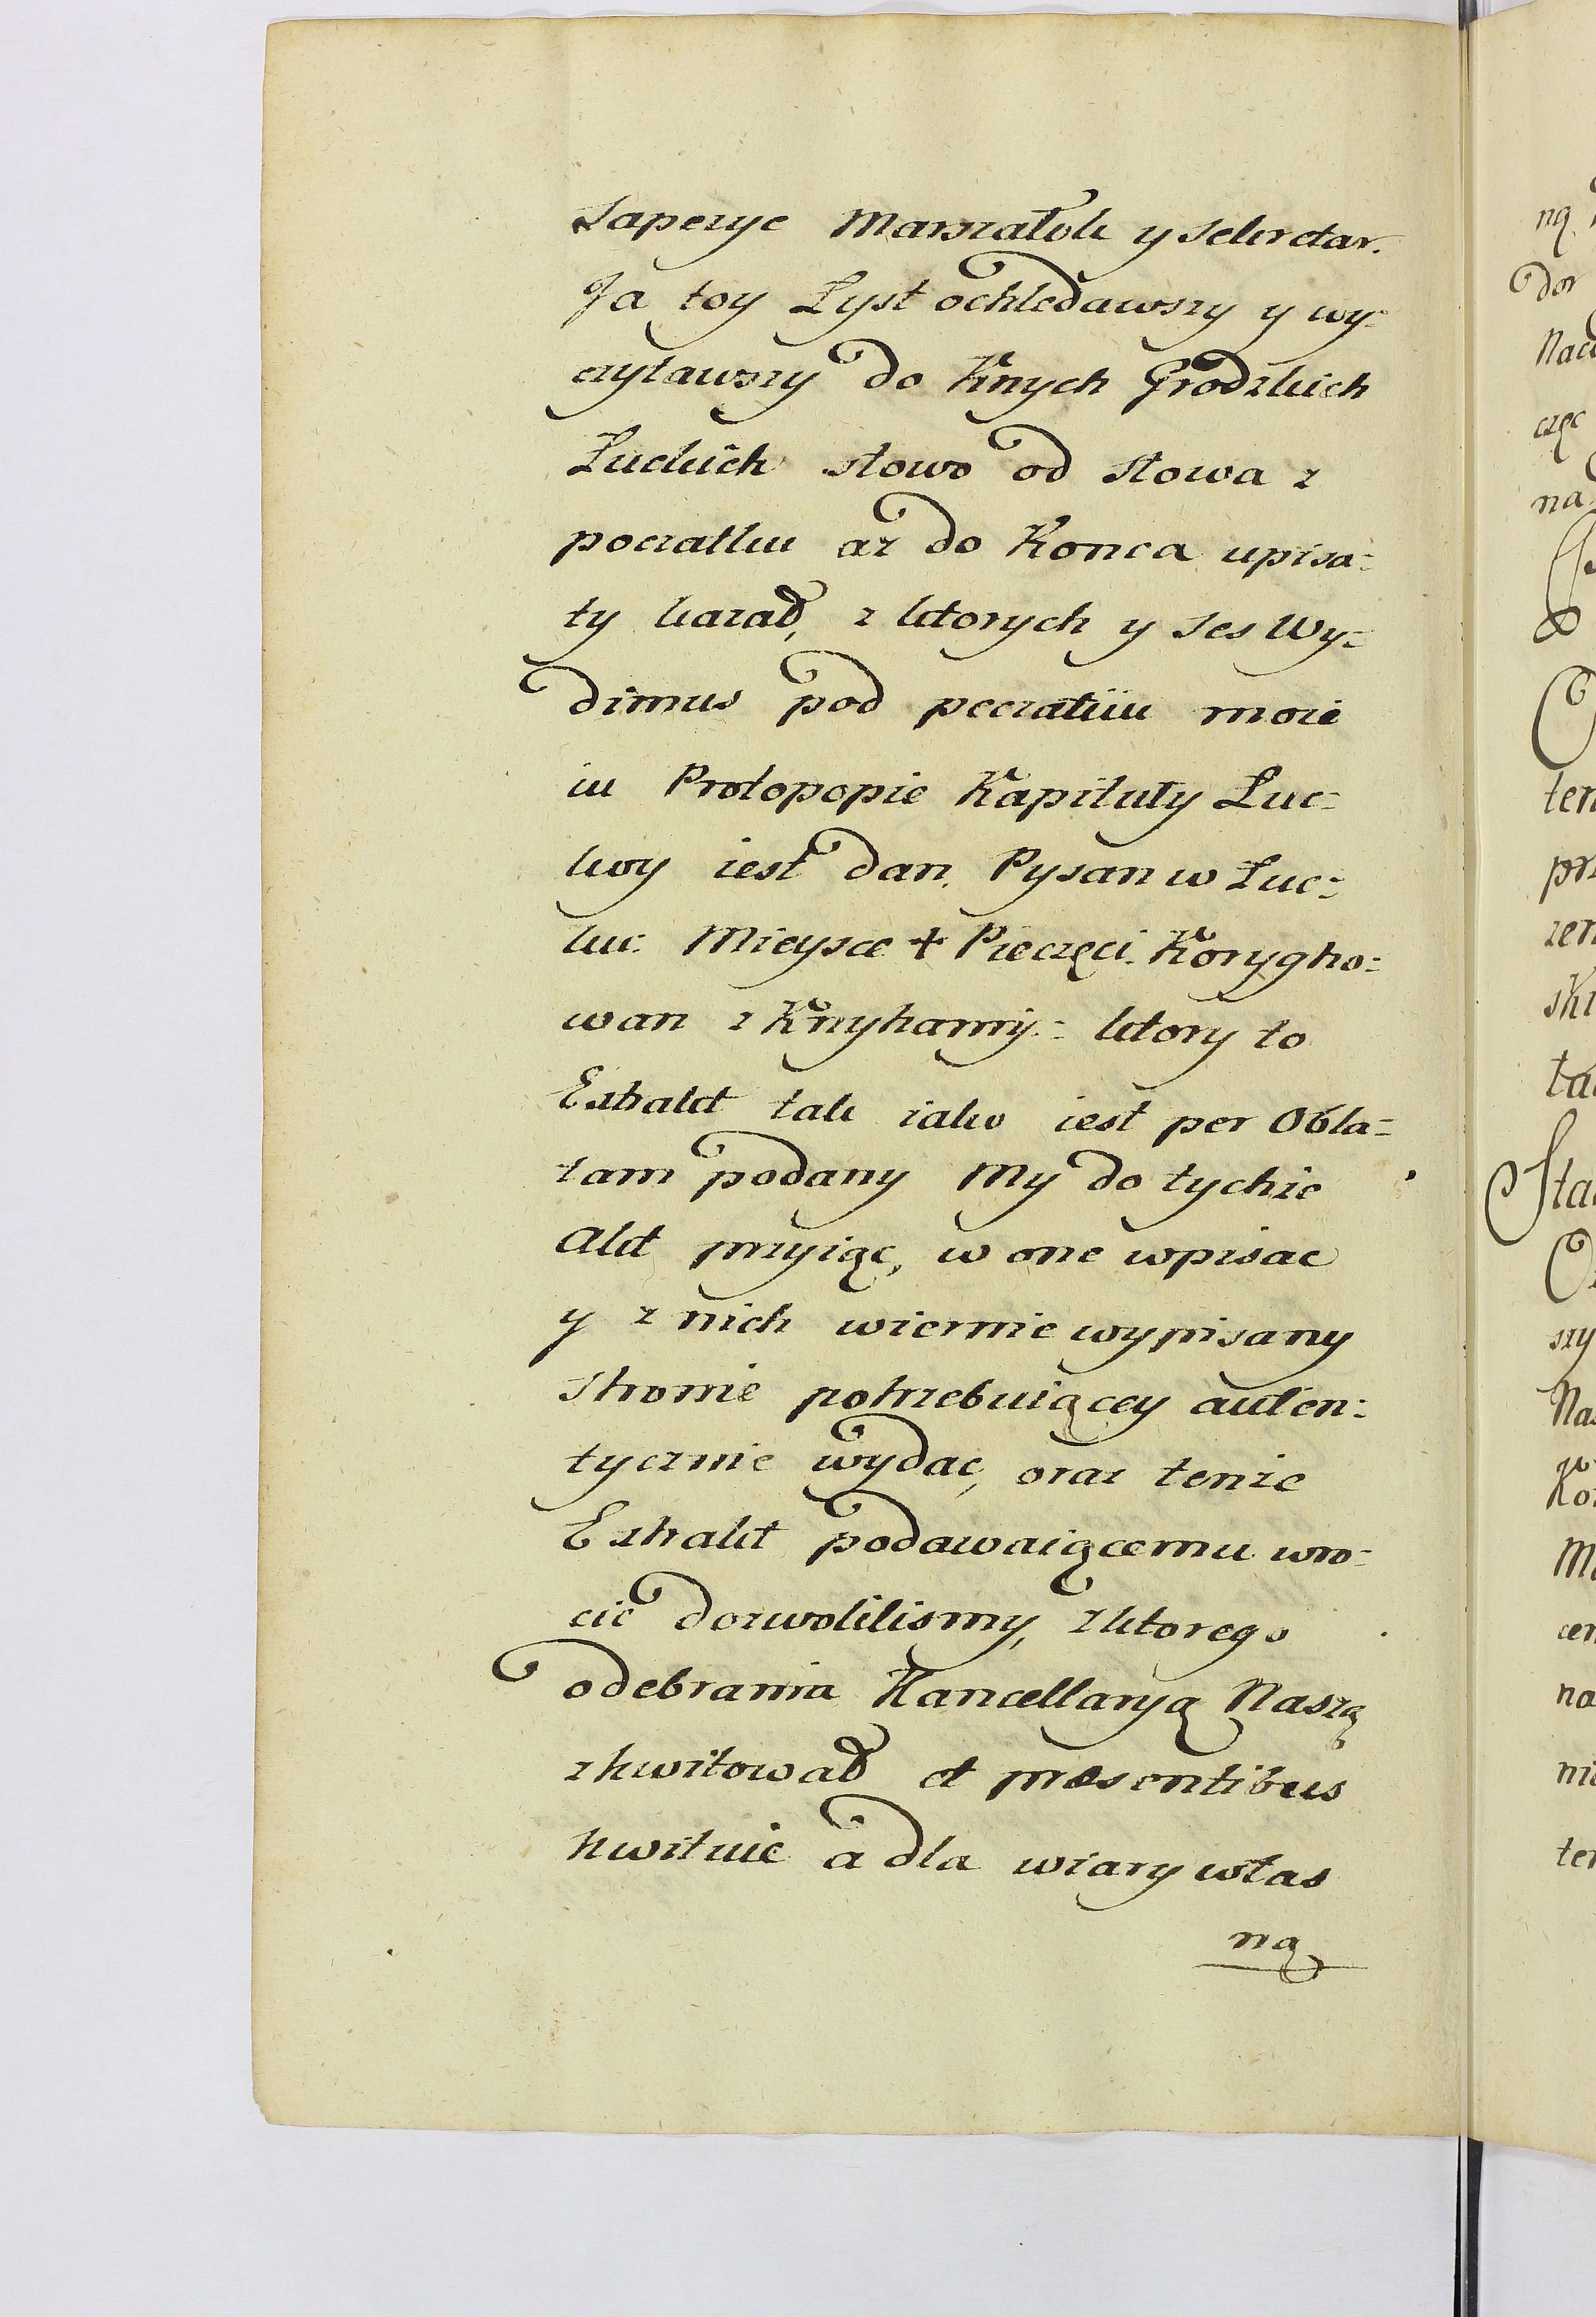 Sapezye Marszałok y Sekretar.
Ja toy Lyst ochledawszy y wy=
czytawszy do Knych Grodzkich
Łuckich słowo od słowa z
początku až do Konca upisa=
ty kazał, z ktorych y ses Wy=
dimus pod peczatiiu moie
iu Protopopie Kapituły Łuc=
koy iest dan. Pysan w Łuc=
ku. Mieysce + Pieczęci. Korygho=
wan z Knyhamy= ktory to
Extrakt tak iako iest per Obla=
tam podany My do tychże
Akt przyiąc, w one wpisac
y z nich wiernie wypisany
stronie potrzebuiącey auten=
tycznie wydac, oraz tenze
Extrakt podawaiącemu wro=
cic dozwolilismy, z ktorego
odebrania Kancellaryą Naszą
zkwitował et præsentibus
kwituie a dla wiary włas
ną
ną
dor
czec
na
ten
prz
zen
ski
szy
cen
na
ten